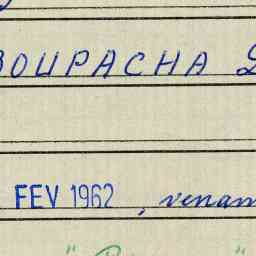 BOUPACHA D
FEV 1962, venant